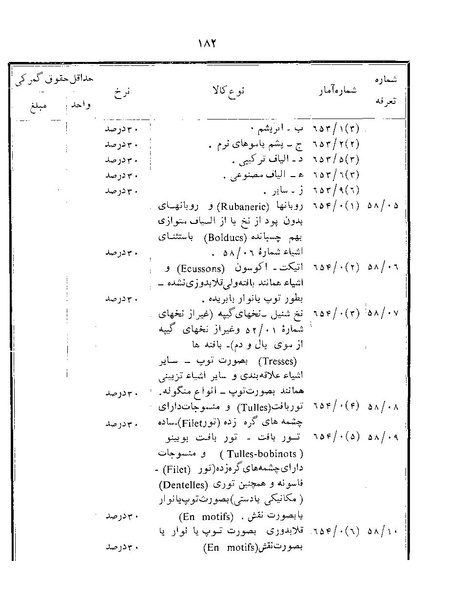 ۱۸۲
شماره تعرفه شمارهآمار نوع کالا نرخ حداقل حقوق گمرکی
واحد مبلغ
۶۵۳/۱(۳) ب - ابریشم . ۳۰درصد
۶۵۳/۲(۲) ج - پشم یاموهای نرم . ۳۰درصد
۶۵۳/۵(۳) د - الیاف ترکیبی . ۳۰درصد
۶۵۳/۶(۳) ه - الیاف مصنوعی . ۳۰درصد
۶۵۳/۹(۶) ز - سایر . ۳۰درصد
۵۸/۰۵ ۶۵۴/۰(۱) روبانها (Rubanerie) و روبانهای
بدون پود از نخ یا از الیاف متوازی
بهم چسبانده (Bolducs) باستثنای
اشیاء شمارهٔ ۵۸/۰۶ . ۳۰درصد
۵۸/۰۶ ۶۵۴/۰(۲) اتیکت - اکوسون (Ecussons) و
اشیاء همانند بافته ولی قلابدوزی نشده -
بطور توپ یانوار یابریده . ۳۰درصد
۵۸/۰۷ ۶۵۴/۰(۳) نخ شنیل - نخهای گیپه (غیراز نخهای
شمارهٔ ۵۲/۰۱ وغیراز نخهای گیپه
از موی یال و دم) - بافته ها
(Tresses) بصورت توپ - سایر
اشیاء علاقه بندی و سایر اشیاء تزیینی
همانند بصورت توپ - انواع منگوله . ۳۰درصد
۵۸/۰۸ ۶۵۴/۰(۴) توربافت (Tulles) و منسوجات دارای
چشمه های گره زده (تور Filet)، ساده ۳۰درصد
۵۸/۰۹ ۶۵۴/۰(۵) تور بافت - تور بافت بوبینو
(Tulles-bobinots) و منسوجات
دارای چشمه های گره زده (تور Filet) -
فاسونه و همچنین توری (Dentelles)
(مکانیکی یادستی) بصورت توپ یانوار
یابصورت نقش . (En motifs) ۳۰درصد
۵۸/۱۰ ۶۵۴/۰(۶) قلابدوزی بصورت توپ یا نوار یا
بصورت نقش (En motifs) ۳۰درصد